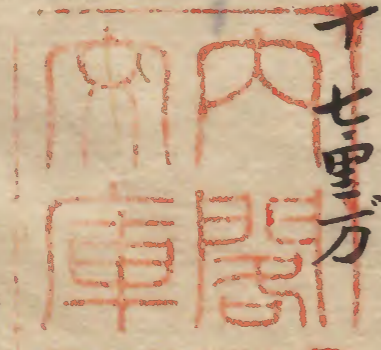 十 七里
内閣
文庫